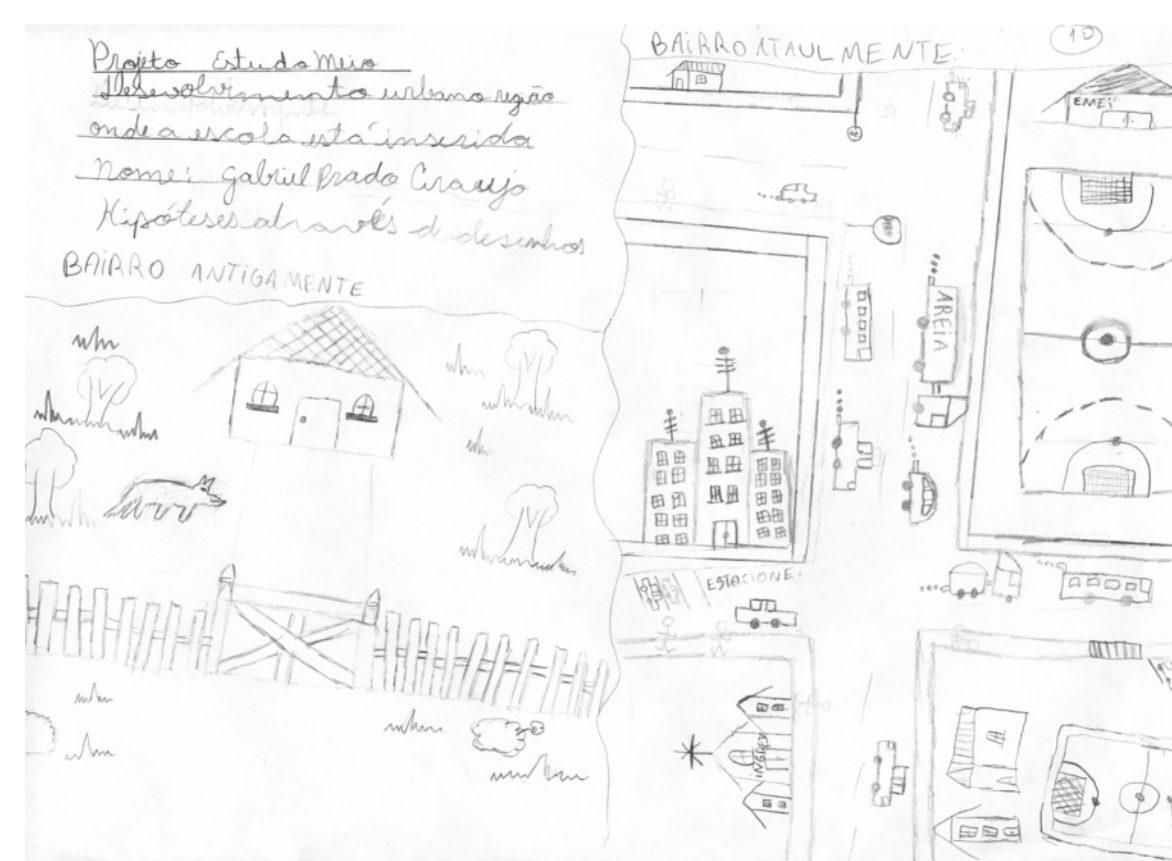 Projeto Estudo Meio
Desenvolvimento urbano região
onde a escola está inserida
Nome: Gabriel Prado Araujo
Hipóteses através de desenhos
BAIRRO ANTIGAMENTE
BAIRRO ATAULMENTE:
10
EMEI
AREIA
ESTACIONE.